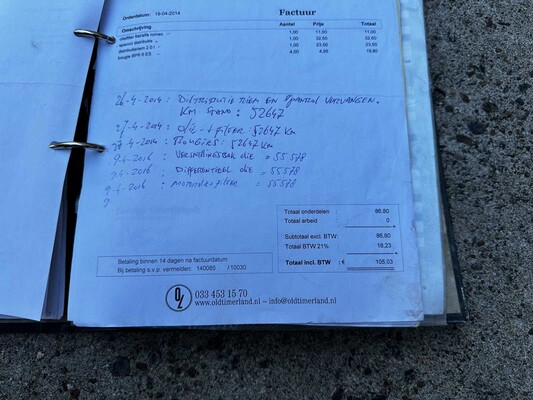 Factuur
Orderdatum: 16-04-2014
Omschrijving Aantal Prijs Totaal
1,00 11,00 11,00
1,00 32,50 32,50
distributieriem 2.0 l 1,00 23,50 23,50
bougie BP6 S ES 4,00 4,95 19,80
26-4-2014: DISTRIBUTIE RIEM EN SPANROL VERVANGEN.
KM STAND: 52647
27-4-2014: OLIE + FILTER: 52647 KM
27 4-2014: BOUGIES: 52647 KM
9-4-2016: VERSNELLINGSBAK OLIE = 55578
9-4-2016: DIFFERENTIEEL OLIE = 55578
9-4-2016: = 55578
Totaal onderdelen : 86,80
Totaal arbeid : 0
Subtotaal excl. BTW: 86,80
Totaal BTW 21% : 18,23
Totaal incl. BTW : € 105,03
Betaling binnen 14 dagen na factuurdatum
Bij betaling s.v.p. vermelden: 140085 / 10030
033 453 15 70
www.oldtimerland.nl – info@oldtimerland.nl